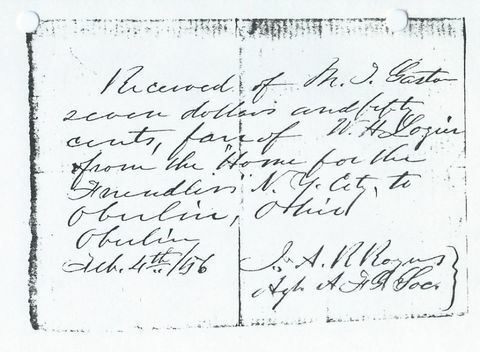 Received of M. I. Gaston
seven dollars and fifty
cents, fare of W. H. Lozier
from the "Home for the
Friendless" N. Y. City, to
Oberlin, Ohio
Oberlin
Feb. 4th /56
J. A. R. Rogers
Agt. A. F. G. Soc.